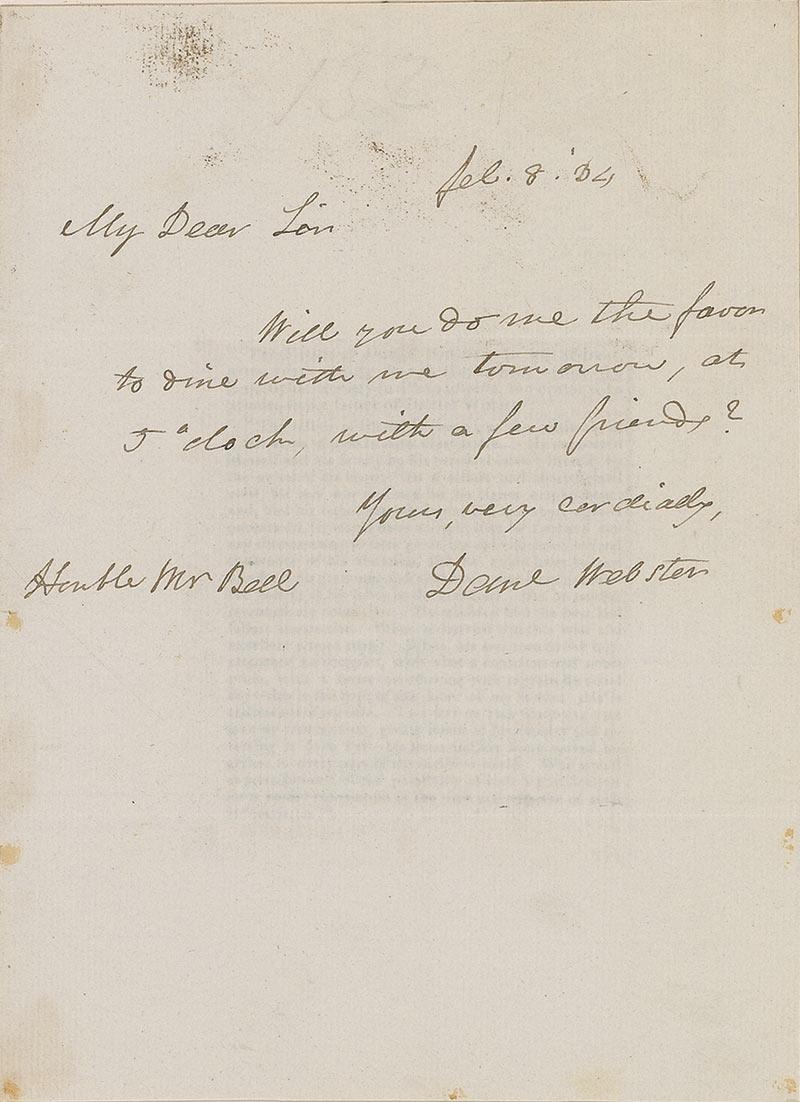 Feb. 8. '34
My Dear Sir
Will you do me the favor
to dine with me tomorrow, at
5 o'clock, with a few friends?
Yours, very cordially,
Honble Mr Bell Danl Webster